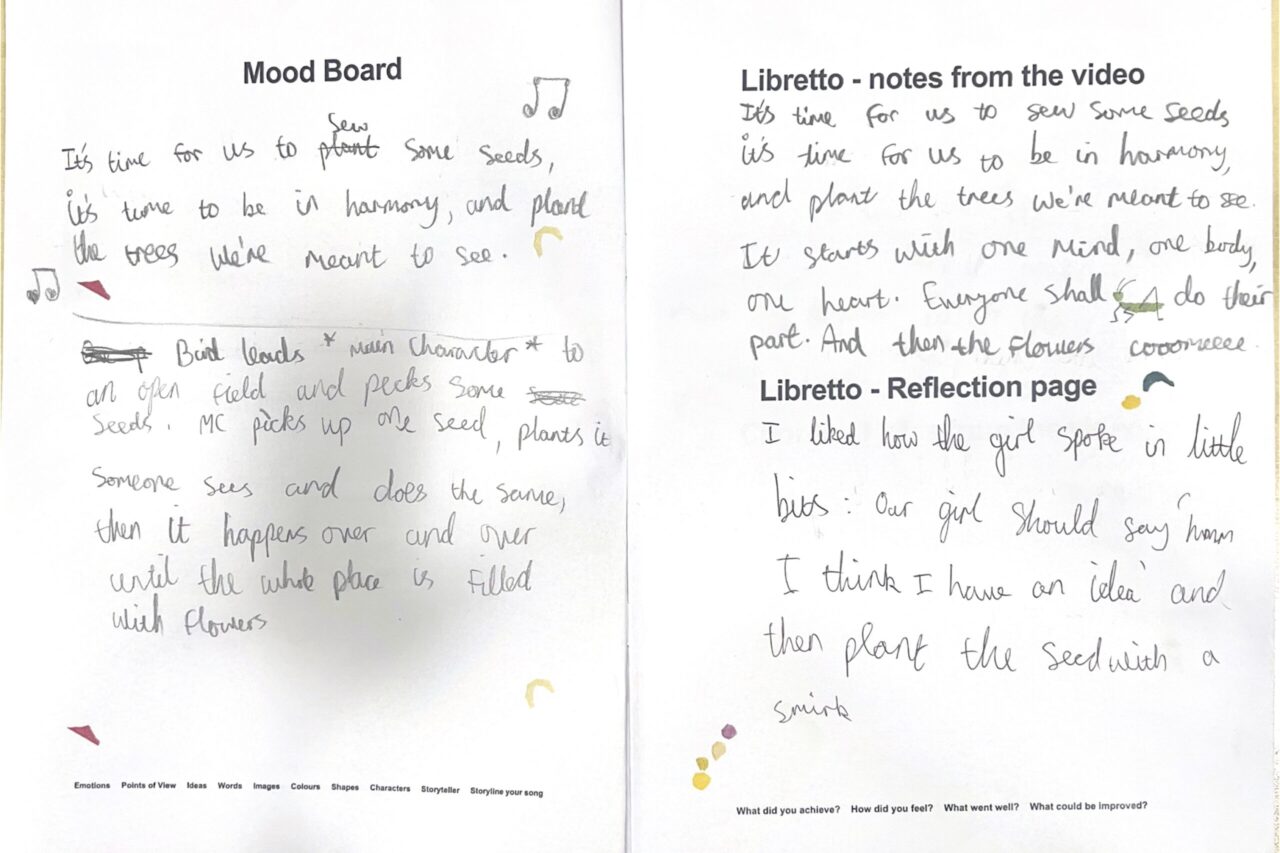 Mood Board
sew
It's time for us to plant some seeds,
it's time to be in harmony, and plant
the trees we're meant to see.
Bird leads *main character* to
an open field and pecks some
seeds. MC picks up one seed, plants it
Someone sees and does the same,
then it happens over and over
until the whole place is filled
with flowers
Emotions Points of View Ideas Words Images Colours Shapes Characters Storyteller Storyline your song
Libretto - notes from the video
It's time for us to sew some seeds
it's time for us to be in harmony,
and plant the trees we're meant to see.
It starts with one mind, one body,
one heart. Everyone shall do their
part. And then the flowers cooomeeee.
Libretto - Reflection page
I liked how the girl spoke in little
bits: Our girl should say 'hmm
I think I have an idea' and
then plant the seed with a
smirk
What did you achieve? How did you feel? What went well? What could be improved?